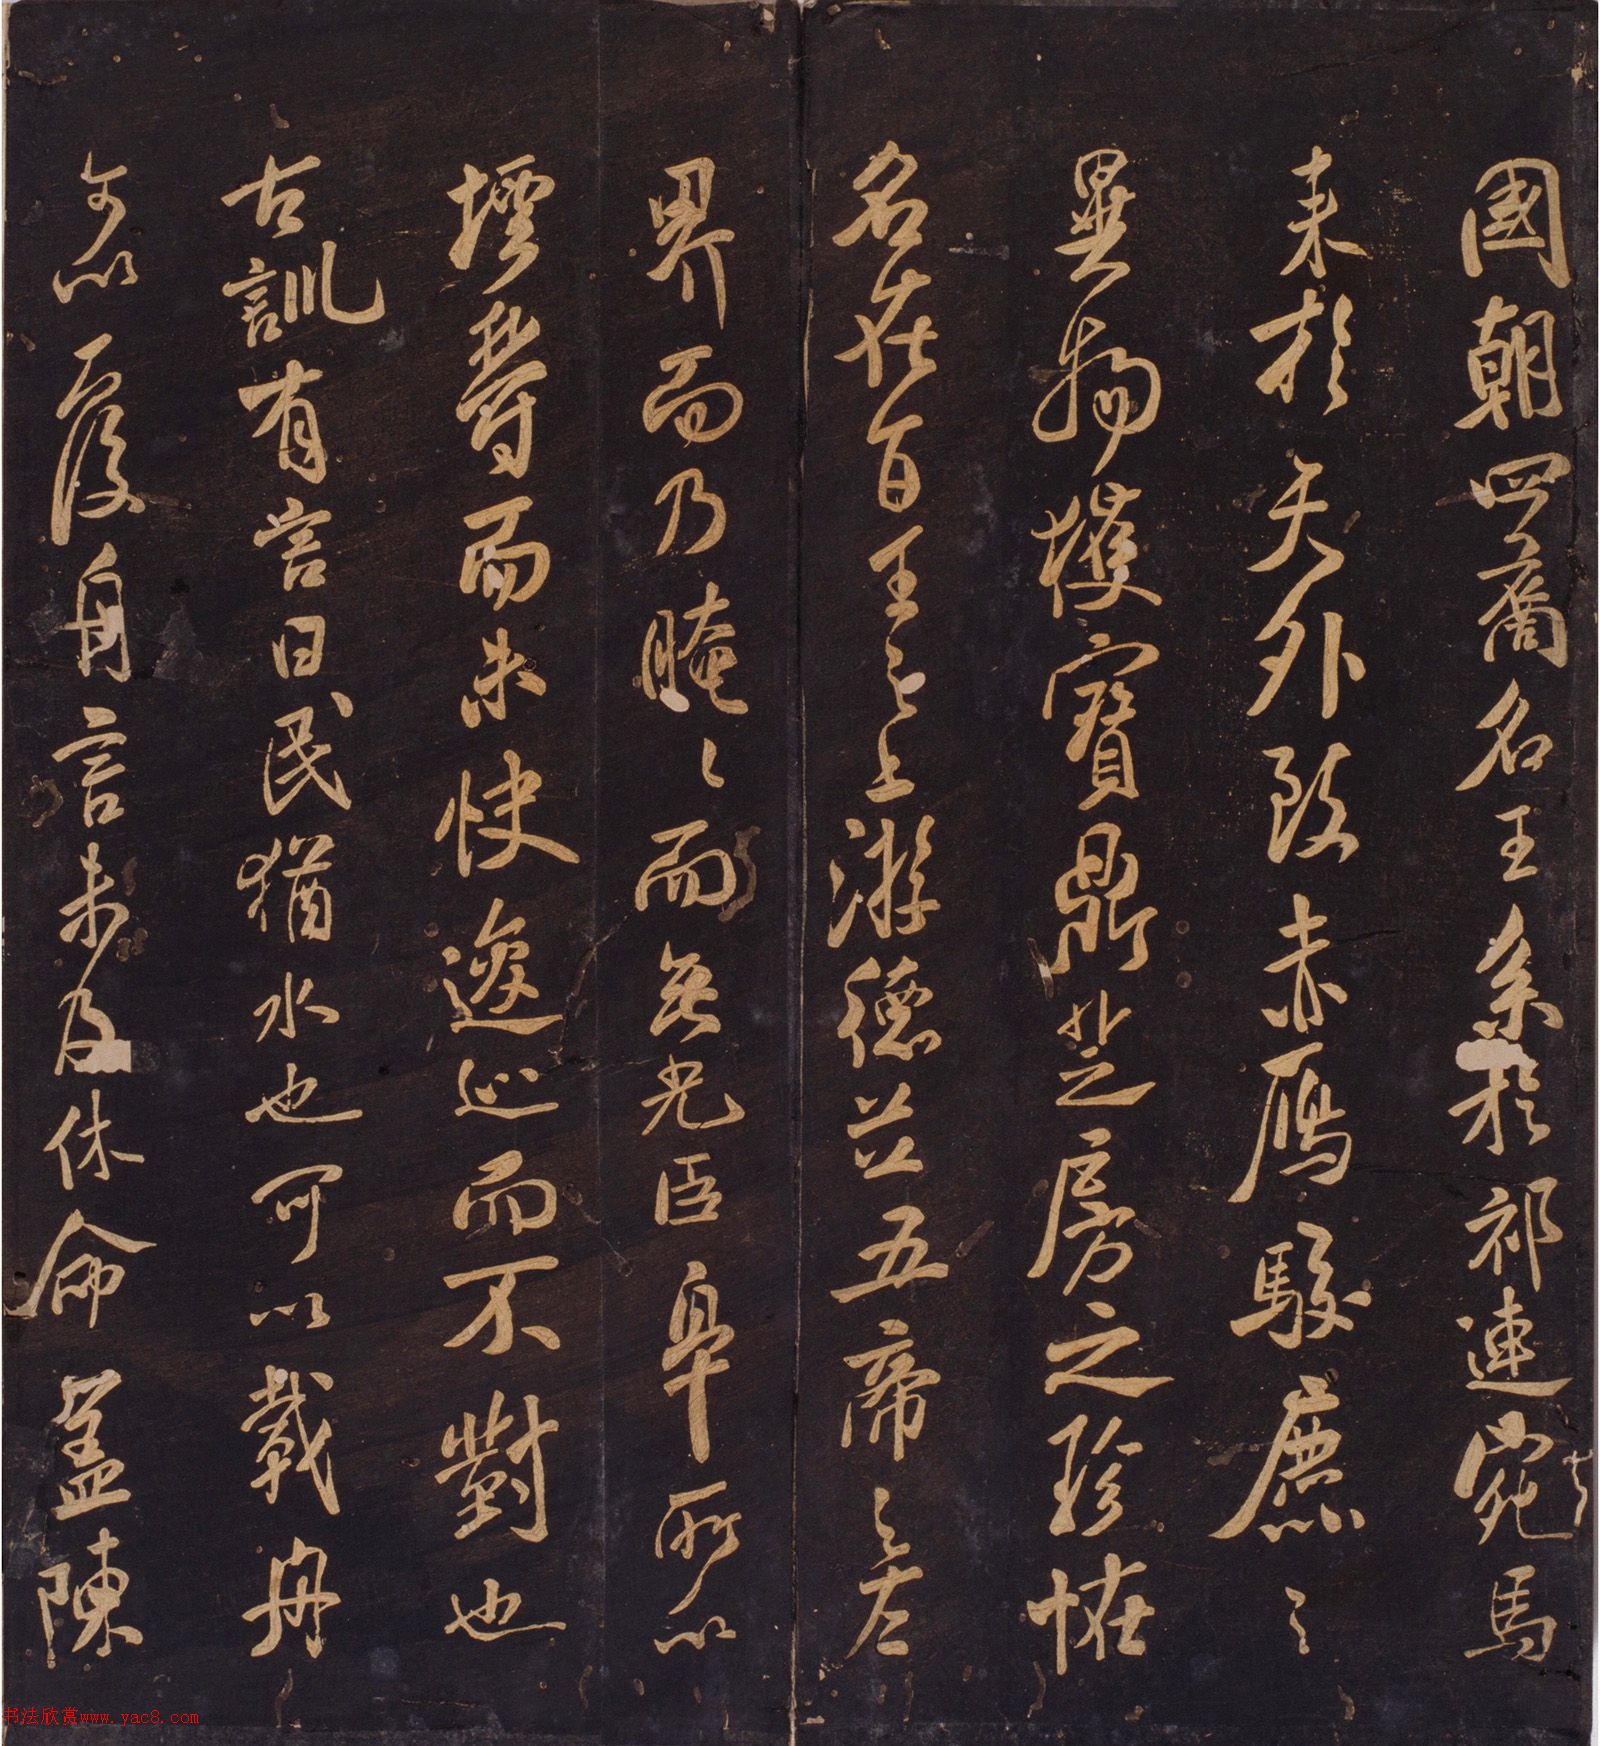 國朝四裔名王系於祁連宛馬
来於天外致赤鴈駮麃之
異物獲寶鼎芝房之珍恠
名在百王之上游德並五帝之左
界而乃晻〻而無光臣皐所以
堙鬱而未快逡巡而不對也
古訓有言曰民猶水也可以載舟
可以覆舟言未及休命孟陳
书法欣赏www.yac8.com